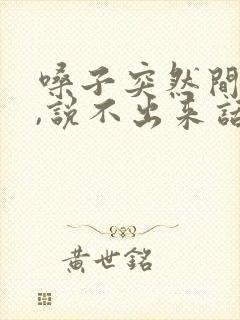 嗓子突然間
,說不出來話
黃世銘